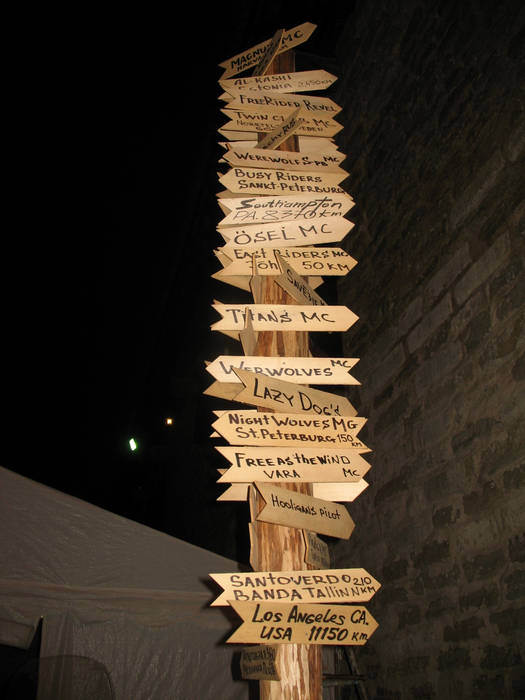 MAGNUM MC
AL-KASHI
ESTONIA 2450 km
FREERIDER REVEL
TWIN CLUB MC
SWEDEN
WEREWOLFS MC
BUSY RIDERS
SANKT-PETERBURG
Southampton
PA. 8370 km
ÖSEL MC
EAST RIDERS MC
JÕHVI 50 KM
TITANS MC
WERWOLVES MC
LAZY DOG'S
NIGHT WOLVES MG
ST. PETERBURG 150 KM
FREE AS THE WIND
VARA MC
HOOLIGANS PILOT
SANTOVERDO 210
BANDA TALLINN KM
LOS ANGELES CA.
USA 11150 KM